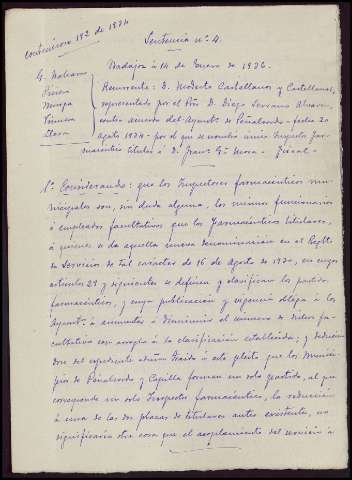 Contencioso 192 de 1934
Sentencia nº 4.
Badajoz á 14 de Enero de 1936.
Recurrente: D. Modesto Castellanos y Castellanos,
representado por el Prº D. Diego Serrano Alvarez,
contra acuerdo del Aymtº de Peñalsordo - fecha 20
agosto 1934 - por el que se nombra único Inspector far-
macéutico titular á D. Franº Gª Mora - Fiscal -
1º Considerando: que los Inspectores farmacéuticos mu-
nicipales son, sin duda alguna, los mismos funcionarios
ó empleados facultativos que los farmacéuticos titulares,
á quienes se da aquella nueva denominación en el Regltº
de Servicios de tal carácter de 16 de agosto de 1930, en cuyos
artículos 29 y siguientes se definen y clasifican los partidos
farmacéuticos, y cuya publicación y vigencia obliga á los
Aymtºs á aumentar ó disminuir el número de dichos fa-
cultativos con arreglo á la clasificación establecida; y deducién-
dose del expediente administrativo á este pleito que los Munici-
pios de Peñalsordo y Capilla forman un solo partido, al que
corresponde un solo Inspector farmacéutico, la reducción
á una de las dos plazas de titulares antes existente, no
significaría otra cosa que el acoplamiento del servicio á